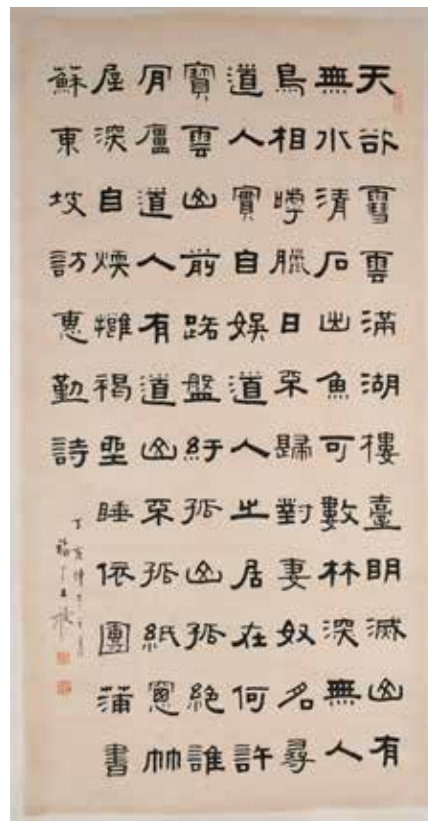 天欲雪雲滿湖樓臺眀滅山有
無水清石出魚可數林深無人
鳥相嘑臘日不歸對妻奴名尋
道人實自娛道人之居在何許
寶雲山前路盤紆孤山孤絕誰
肎廬道人有道山不孤紙窻竹
屋深自煖擁褐坐睡依團蒲書
蘇東坡訪惠勤詩
丁亥
福厂王禔